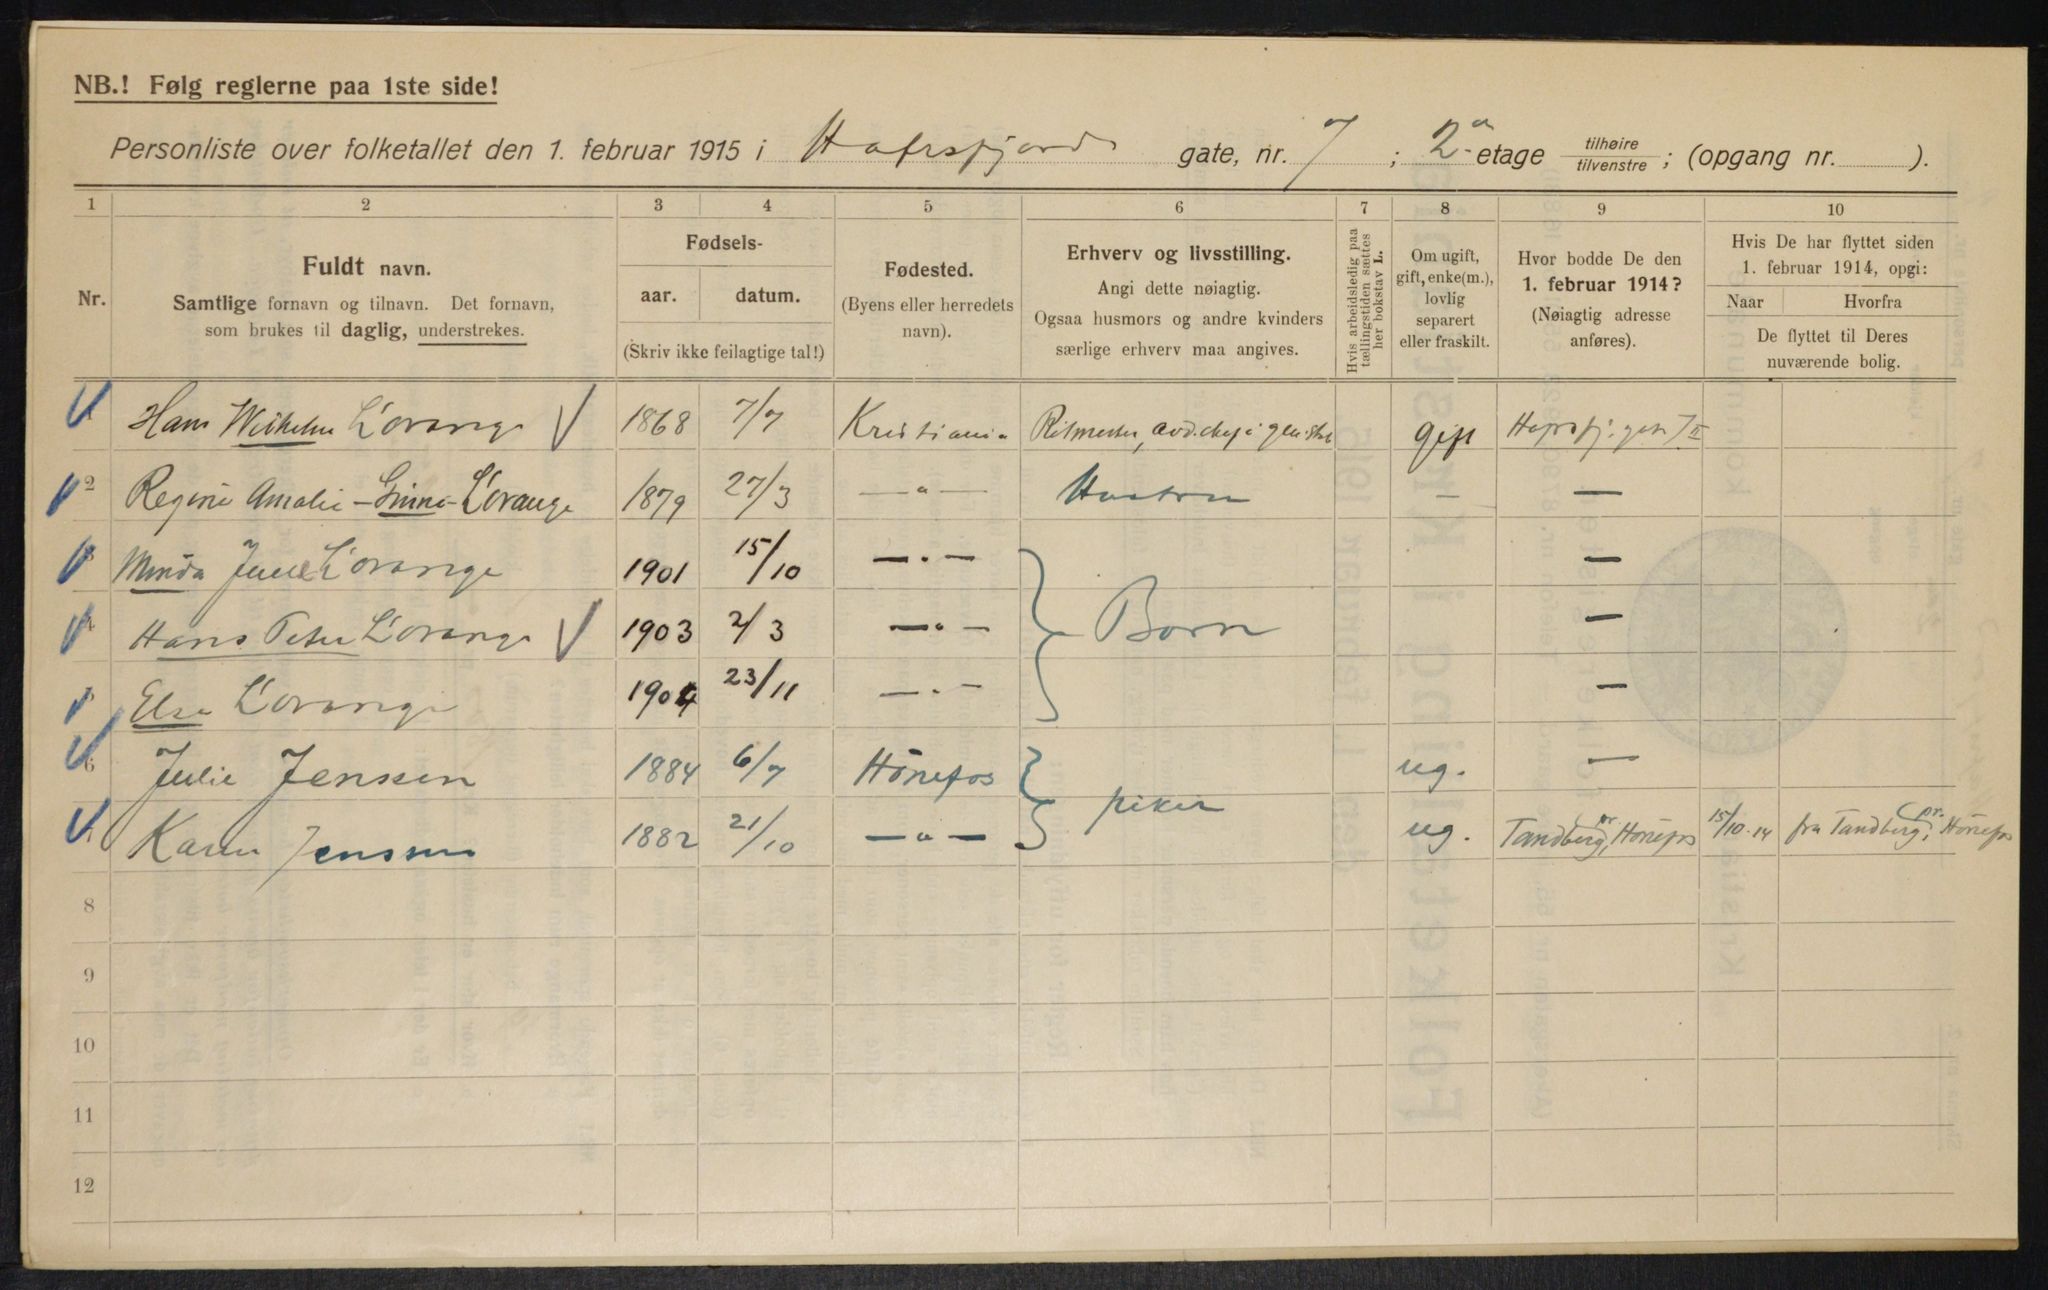 NB.! Følg reglerne paa 1ste side!
Personliste over folketallet den 1. februar 1915 i Hafrsfjords gate, nr. 7 ; 2 etage tilhøire tilvenstre ; (opgang nr. ).
1 2 3 4 5 6 7 8 9 10
Nr.
Fuldt navn.
Samtlige fornavn og tilnavn. Det fornavn,
som brukes til daglig, understrekes.
Fødsels-
aar. datum.
(Skriv ikke feilagtige tal!)
Fødested.
(Byens eller herredets
navn).
Erhverv og livsstilling.
Angi dette nøiagtig.
Ogsaa husmors og andre kvinders
særlige erhverv maa angives.
Hvis arbeidsledig paa
tællingstiden sættes
her bokstav L.
Om ugift,
gift, enke(m.),
lovlig
separert
eller fraskilt.
Hvor bodde De den
1. februar 1914?
(Nøiagtig adresse
anføres).
Hvis De har flyttet siden
1. februar 1914, opgi:
Naar Hvorfra
De flyttet til Deres
nuværende bolig.
1 Hans Wilhelm L'orange 1868 7/7 Kristiania Ritmester, avd.chef i gen.stab gift Hafrsfj. gate 7 II
2 Regine Amalie L'orange 1879 27/3 — " — Hustru — —
3 Minda Julie L'orange 1901 15/10 — " — —
4 Hans Peter L'orange 1903 2/3 — " — Børn —
5 Else L'orange 1904 23/11 — " — —
6 Julie Jenssen 1884 6/7 Hönefos ug. —
7 Karen Jenssen 1882 21/10 — " — piker ug. Tandberg, pr. Hönefos 15/10-14 fra Tandberg, pr. Hönefos
8
9
10
11
12